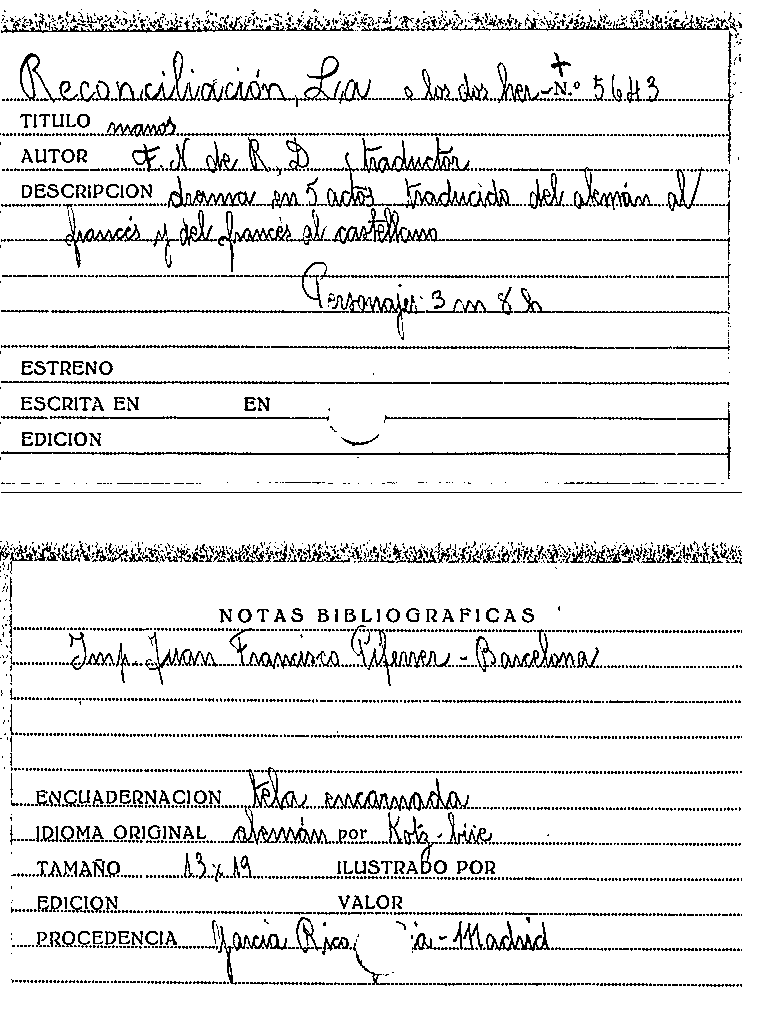 Reconciliación, La o los dos her- N.º 5643
TITULO manos
AUTOR F. N de R, D , traductor
DESCRIPCION drama en 5 actos traducido del alemán al
francés y del francés al castellano
Personajes: 3 m 8 h
ESTRENO
ESCRITA EN EN
EDICION
NOTAS BIBLIOGRAFICAS
Imp. Juan Francisco Piferrer - Barcelona
ENCUADERNACION tela encarnada
IDIOMA ORIGINAL alemán por
TAMAÑO 13 x 19 ILUSTRADO POR
EDICION VALOR
PROCEDENCIA García Rico, - Madrid